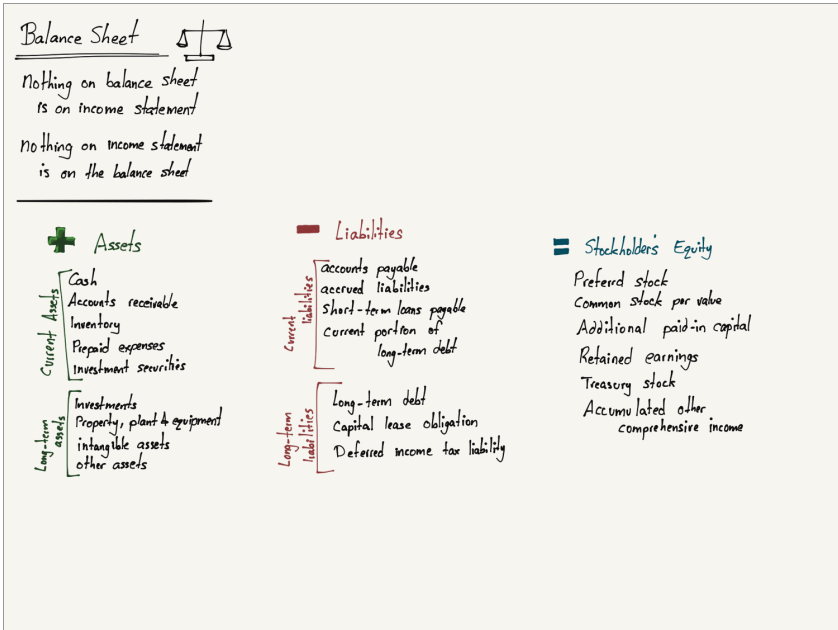 Balance Sheet
Nothing on balance sheet
is on income statement
Nothing on income statement
is on the balance sheet
Assets
Current Assets
Cash
Accounts receivable
Inventory
Prepaid expenses
Investment securities
Long-term
assets
Investments
Property, plant & equipment
intangible assets
other assets
Liabilities
Current
liabilities
accounts payable
accrued liabilities
Short-term loans payable
Current portion of
long-term debt
Long-term
liabilities
Long-term debt
Capital lease obligation
Deferred income tax liability
= Stockholder's Equity
Preferrd stock
Common stock par value
Additional paid-in capital
Retained earnings
Treasury stock
Accumulated other
comprehensive income